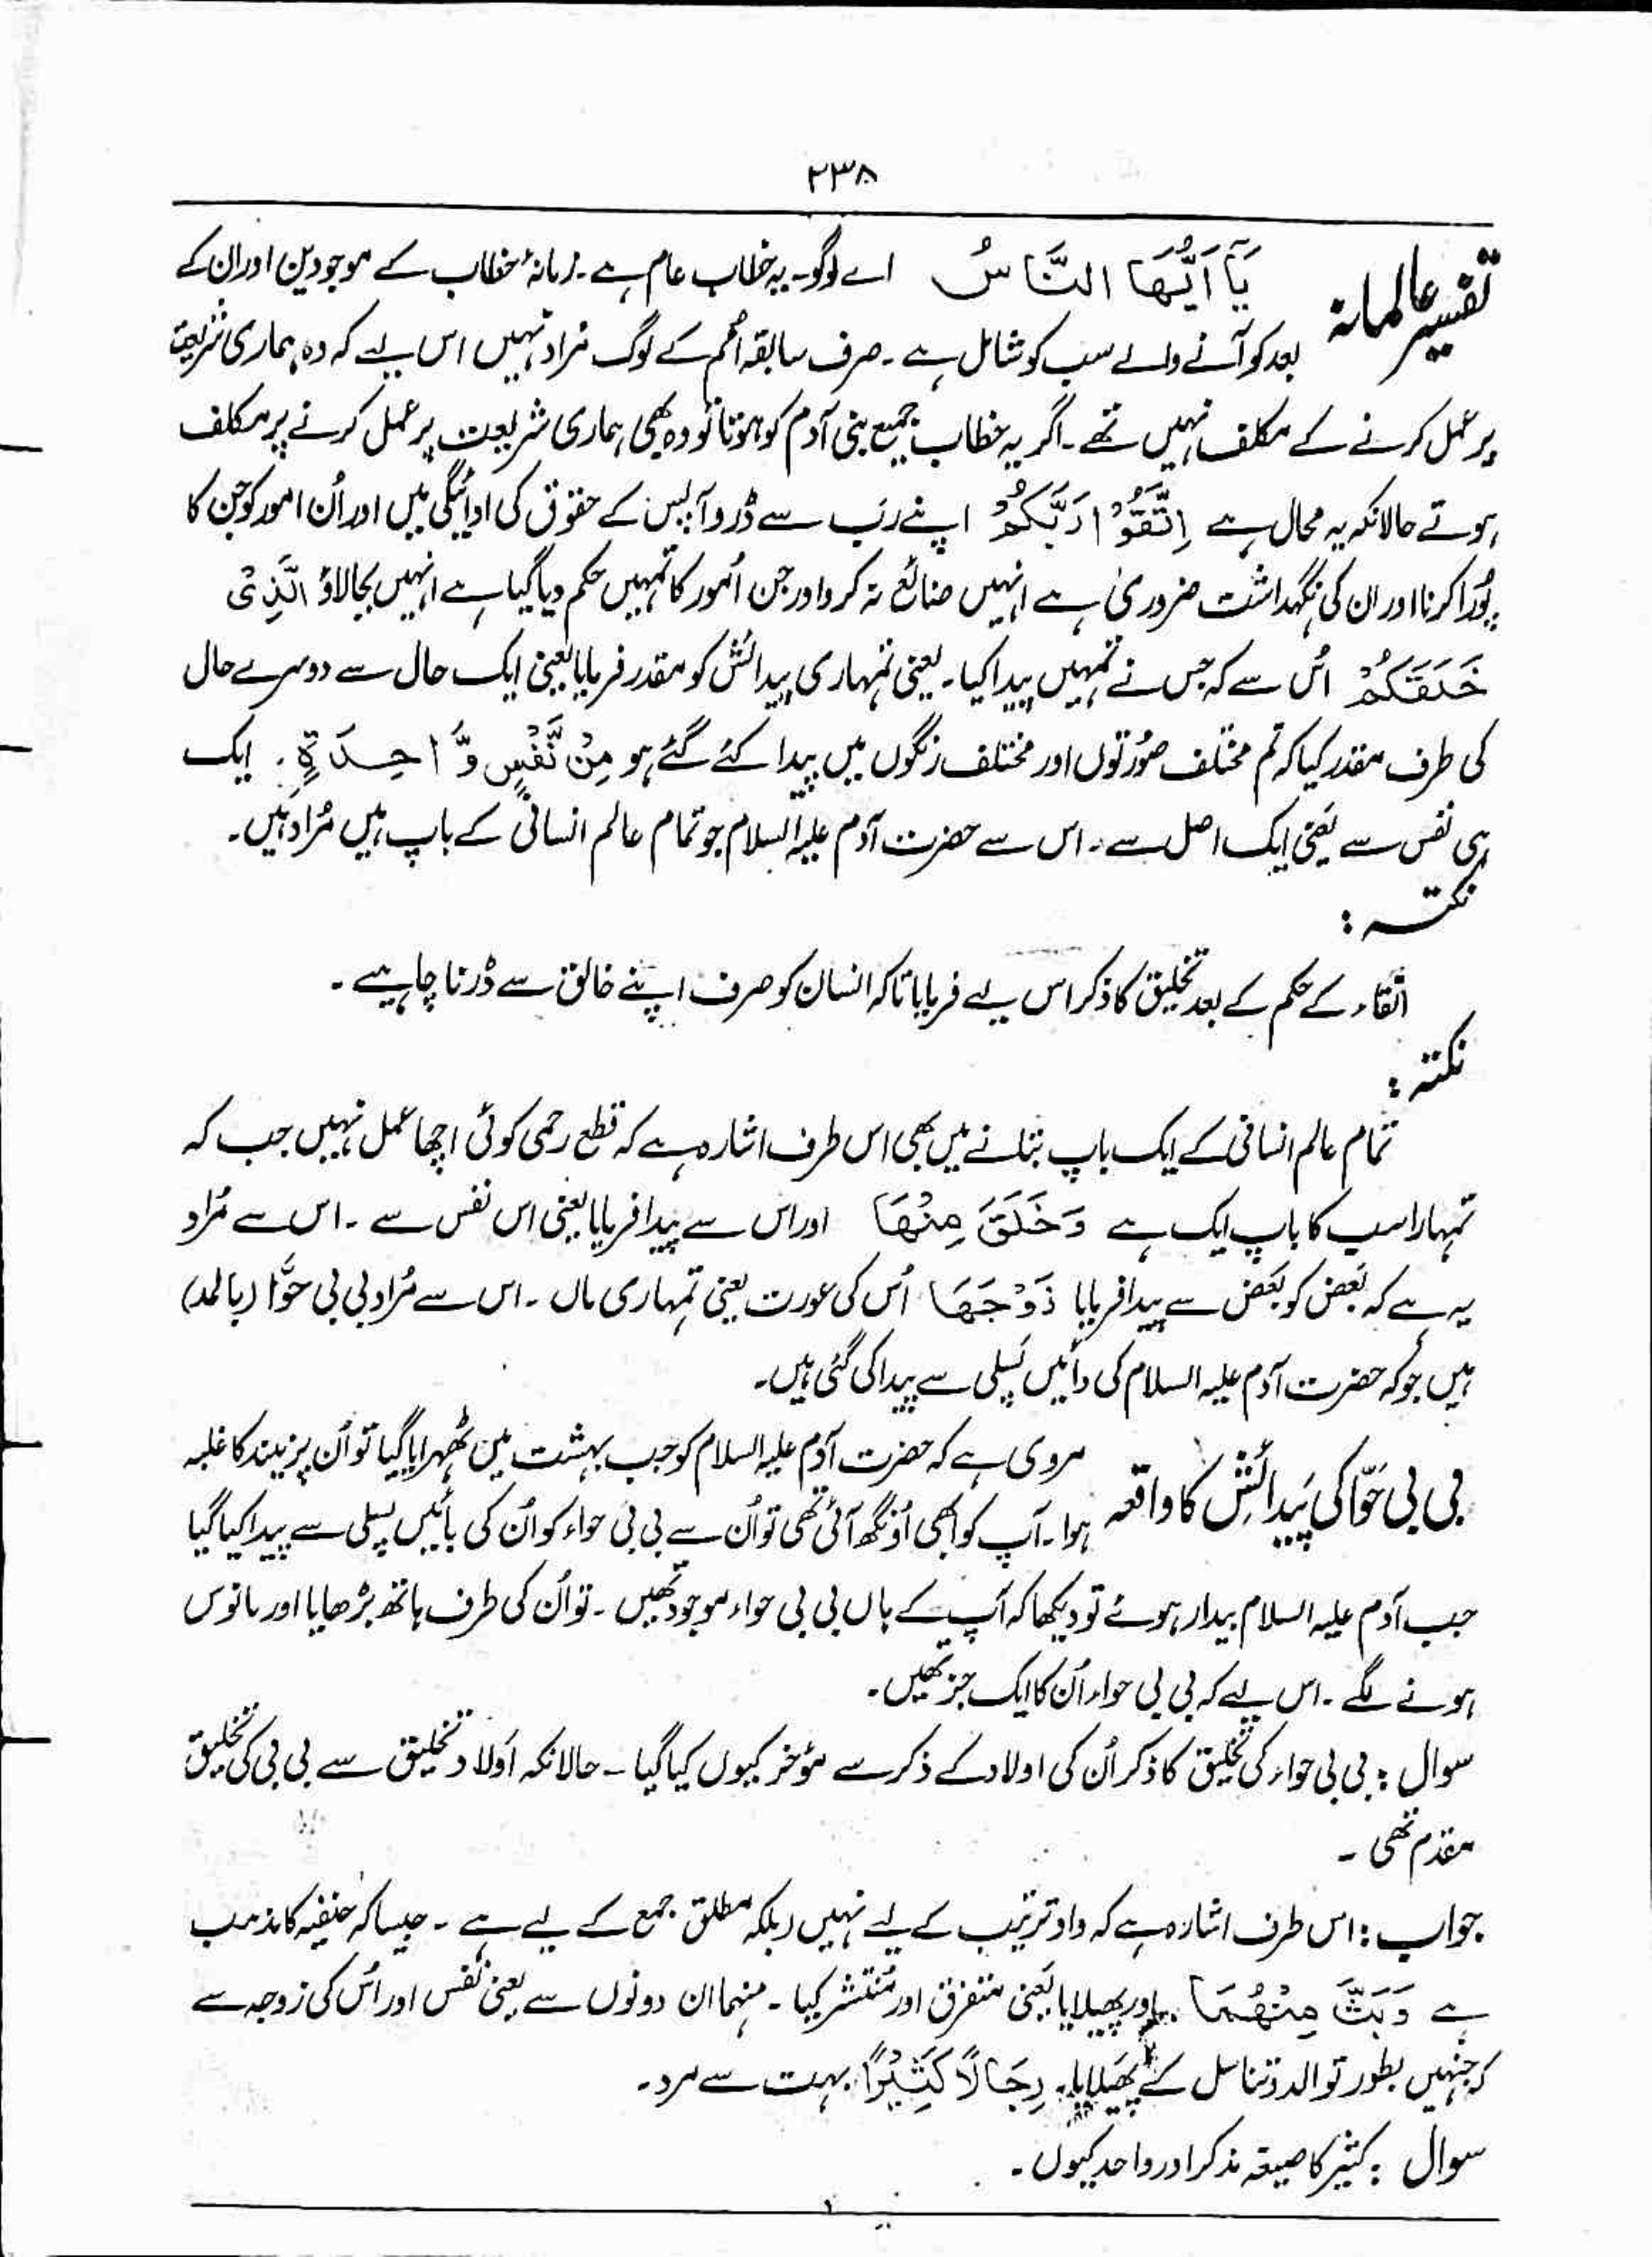 ۲۳۸
تفسیر عالمانہ یَآ اَیُّھَا النَّاسُ اے لوگو۔ یہ خطاب عام ہے۔ زمانۂ خطاب کے موجودین اور ان کے
بعد کو آنے والے سب کو شامل ہے۔ صرف سابقہ اُمم کے لوگ مُراد نہیں اس لیے کہ وہ ہماری شریعت
پر عمل کرنے کے مکلف نہیں تھے۔ اگر یہ خطاب جمیع بنی آدم کو ہوتا تو وہ بھی ہماری شریعت پر عمل کرنے پر مکلف
ہوتے حالانکہ یہ محال ہے اِتَّقُوْا رَبَّكُمُ اپنے رَب سے ڈرو آپس کے حقوق کی ادائیگی میں اور اُن امور کو جن کا
پُورا کرنا اور ان کی نگہداشت ضروری ہے انہیں ضائع نہ کرو اور جن اُمور کا تمہیں حکم دیا گیا ہے انہیں بجالاؤ الَّذِیْ
خَلَقَكُمْ اُس سے کہ جس نے تمہیں پیدا کیا۔ یعنی تمہاری پیدائش کو مقدر فرمایا یعنی ایک حال سے دوسرے حال
کی طرف مقدر کیا کہ تم مختلف صُورتوں اور مختلف رنگوں میں پیدا کئے گئے ہو مِنْ نَّفْسٍ وَّاحِدَۃٍ۔ ایک
ہی نفس سے یعنی ایک اصل سے۔ اس سے حضرت آدم علیہ السلام جو تمام عالم انسانی کے باپ ہیں مُراد ہیں۔
نکتہ :
اتقاء کے حکم کے بعد تخلیق کا ذکر اس لیے فرمایا تاکہ انسان کو صرف اپنے خالق سے ڈرنا چاہیے۔
نکتہ :
تمام عالم انسانی کے ایک باپ بتانے میں بھی اس طرف اشارہ ہے کہ قطع رحمی کوئی اچھا عمل نہیں جب کہ
تمہارا سب کا باپ ایک ہے وَخَلَقَ مِنْھَا اور اس سے پیدا فرمایا یعنی اس نفس سے۔ اس سے مُراد
یہ ہے کہ بعض کو بعض سے پیدا فرمایا زَوْجَھَا اُس کی عورت یعنی تمہاری ماں۔ اس سے مُراد بی بی حوّا (بالمد)
ہیں جو کہ حضرت آدم علیہ السلام کی دائیں پسلی سے پیدا کی گئی ہیں۔
بی بی حَوّا کی پَیدائش کا واقعہ مروی ہے کہ حضرت آدم علیہ السلام کو جب بہشت میں ٹھہرایا گیا تو اُن پر نیند کا غلبہ
ہوا۔ آپ کو ابھی اُونگھ آئی تھی تو اُن سے بی بی حواء کو اُن کی بائیں پسلی سے پیدا کیا گیا
جب آدم علیہ السلام بیدار ہوئے تو دیکھا کہ آپ کے ہاں بی بی حواء موجود تھیں۔ تو اُن کی طرف ہاتھ بڑھایا اور مانوس
ہونے لگے۔ اس لیے کہ بی بی حواء اُن کا ایک جز تھیں۔
سوال : بی بی حواء کی تخلیق کا ذکر اُن کی اولاد کے ذکر سے مؤخر کیوں کیا گیا ۔ حالانکہ اَولاد تخلیق سے بی بی کی تخلیق
مقدم تھی ۔
جواب : اس طرف اشارہ ہے کہ واو ترتیب کے لیے نہیں بلکہ مطلق جمع کے لیے ہے ۔ جیسا کہ حنفیہ کا مذہب
ہے وَبَثَّ مِنْھُمَا اور پھیلایا یعنی متفرق اور مُنتشر کیا ۔ منہما ان دونوں سے یعنی نفس اور اُس کی زوجہ سے
کہ جنہیں بطور توالد و تناسل کے پھیلایا۔ رِجَالًا كَثِیْرًا بہت سے مرد۔
سوال : کثیر کا صیغہ مذکر اور واحد کیوں۔